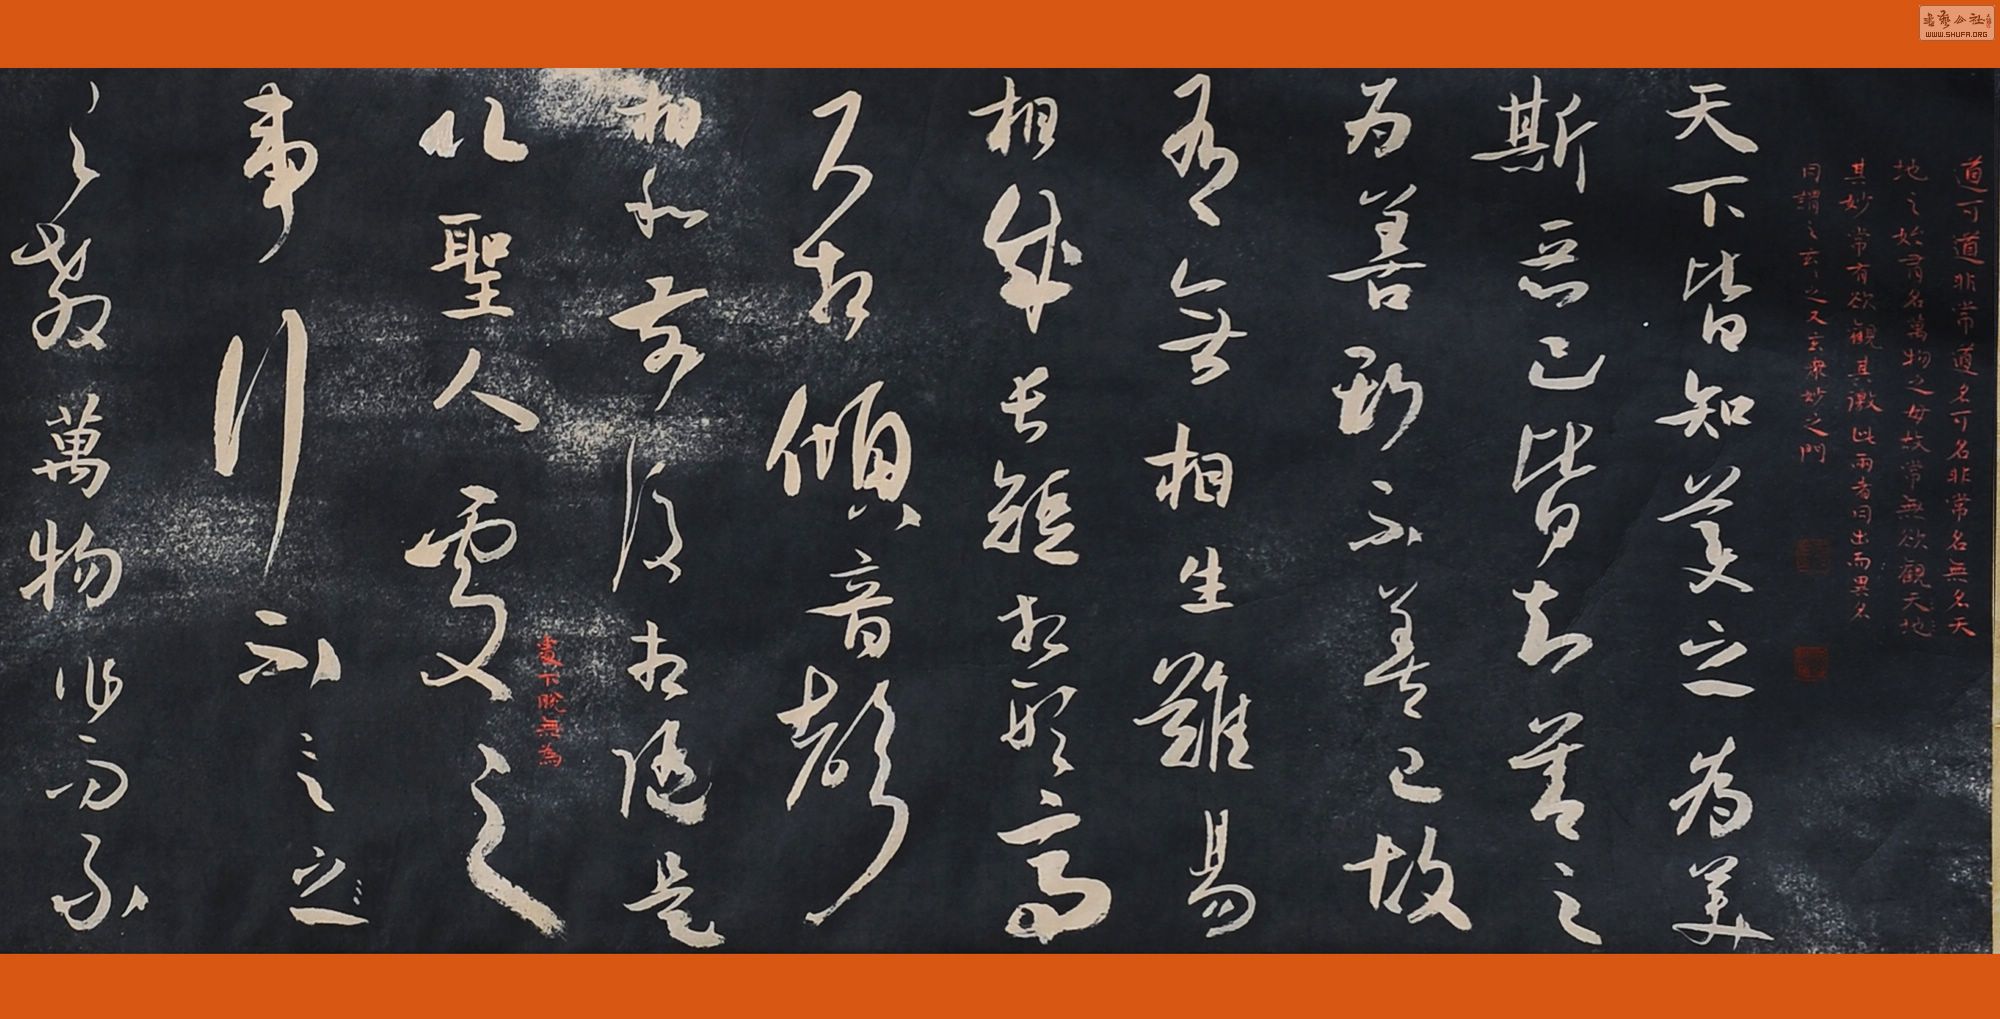 書藝公社
WWW.SHUFA.ORG
道可道非常道名可名非常名無名天
地之始有名萬物之母故常無欲觀天地
其妙常有欲觀其徼此兩者同出而異名
同謂之玄〻之又玄衆妙之門
天下皆知美之為美
斯惡已皆知善之
為善斯不善已故
有無相生難易
相成長短相形高
下相傾音聲
相和前後相随是
以聖人處之
處下脫無為
事行不言之
之教萬物作而不